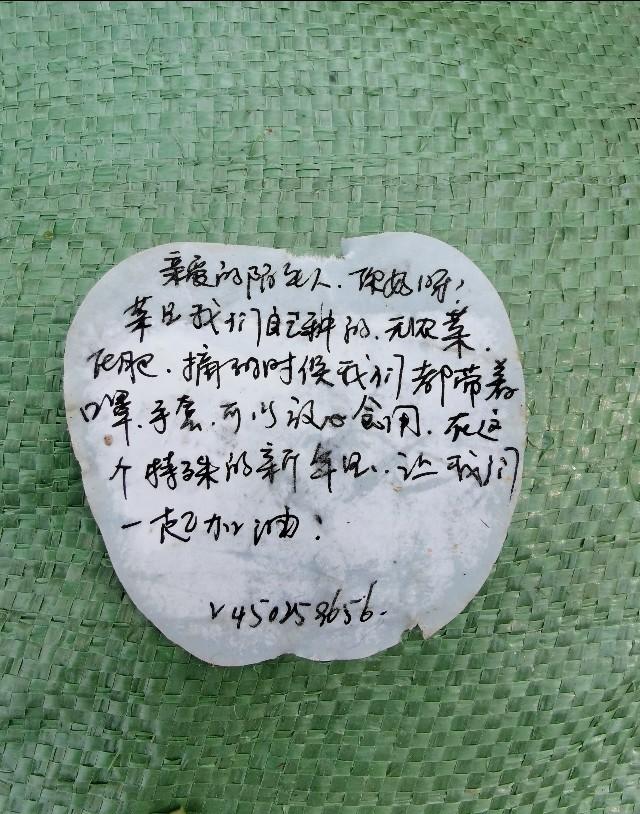 亲爱的陌生人.你好呀!
菜是我们自己种的.无农药.
化肥.摘的时候我们都带着
口罩.手套.可以放心食用.在这
个特殊的新年里.让我们
一起加油!
V450258656.